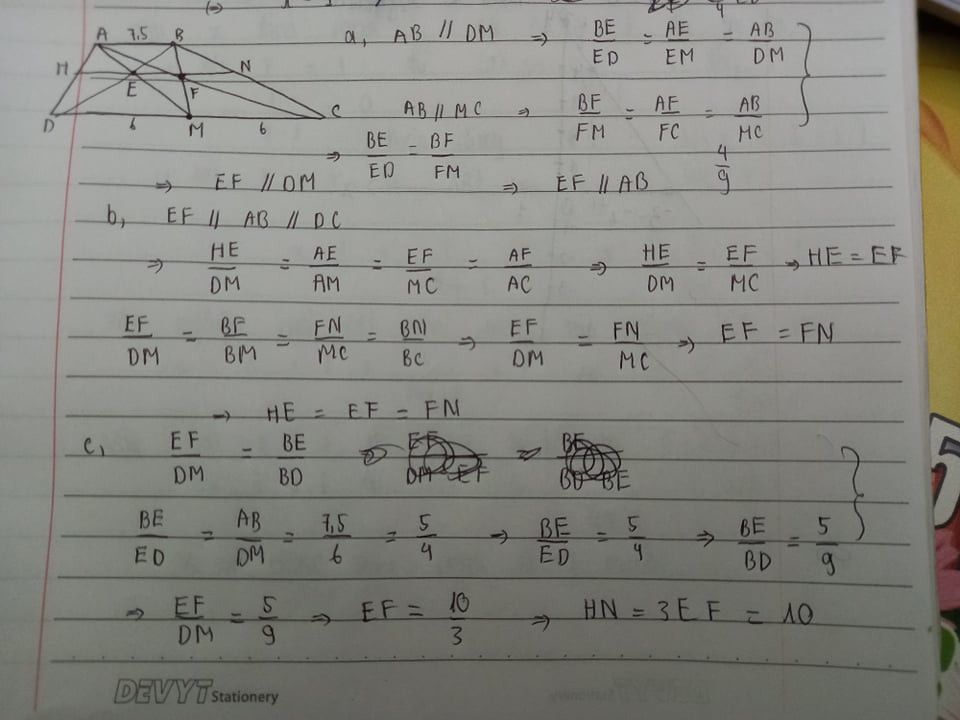 A 7,5 B
H N
E F
D 6 M 6 C
a, AB // DM ⇒ BE/ED = AE/EM = AB/DM
AB // MC ⇒ BF/FM = AF/FC = AB/MC
⇒ BE/ED = BF/FM
4/9
⇒ EF // DM ⇒ EF // AB
b, EF // AB // DC
⇒ HE/DM = AE/AM = EF/MC = AF/AC ⇒ HE/DM = EF/MC ⇒ HE = EF
EF/DM = BF/BM = FN/MC = BN/BC ⇒ EF/DM = FN/MC ⇒ EF = FN
⇒ HE = EF = FN
c, EF/DM = BE/BD
BE/ED = AB/DM = 7,5/6 = 5/4 ⇒ BE/ED = 5/4 ⇒ BE/BD = 5/9
⇒ EF/DM = 5/9 ⇒ EF = 10/3 ⇒ HN = 3EF = 10
DEVYT Stationery